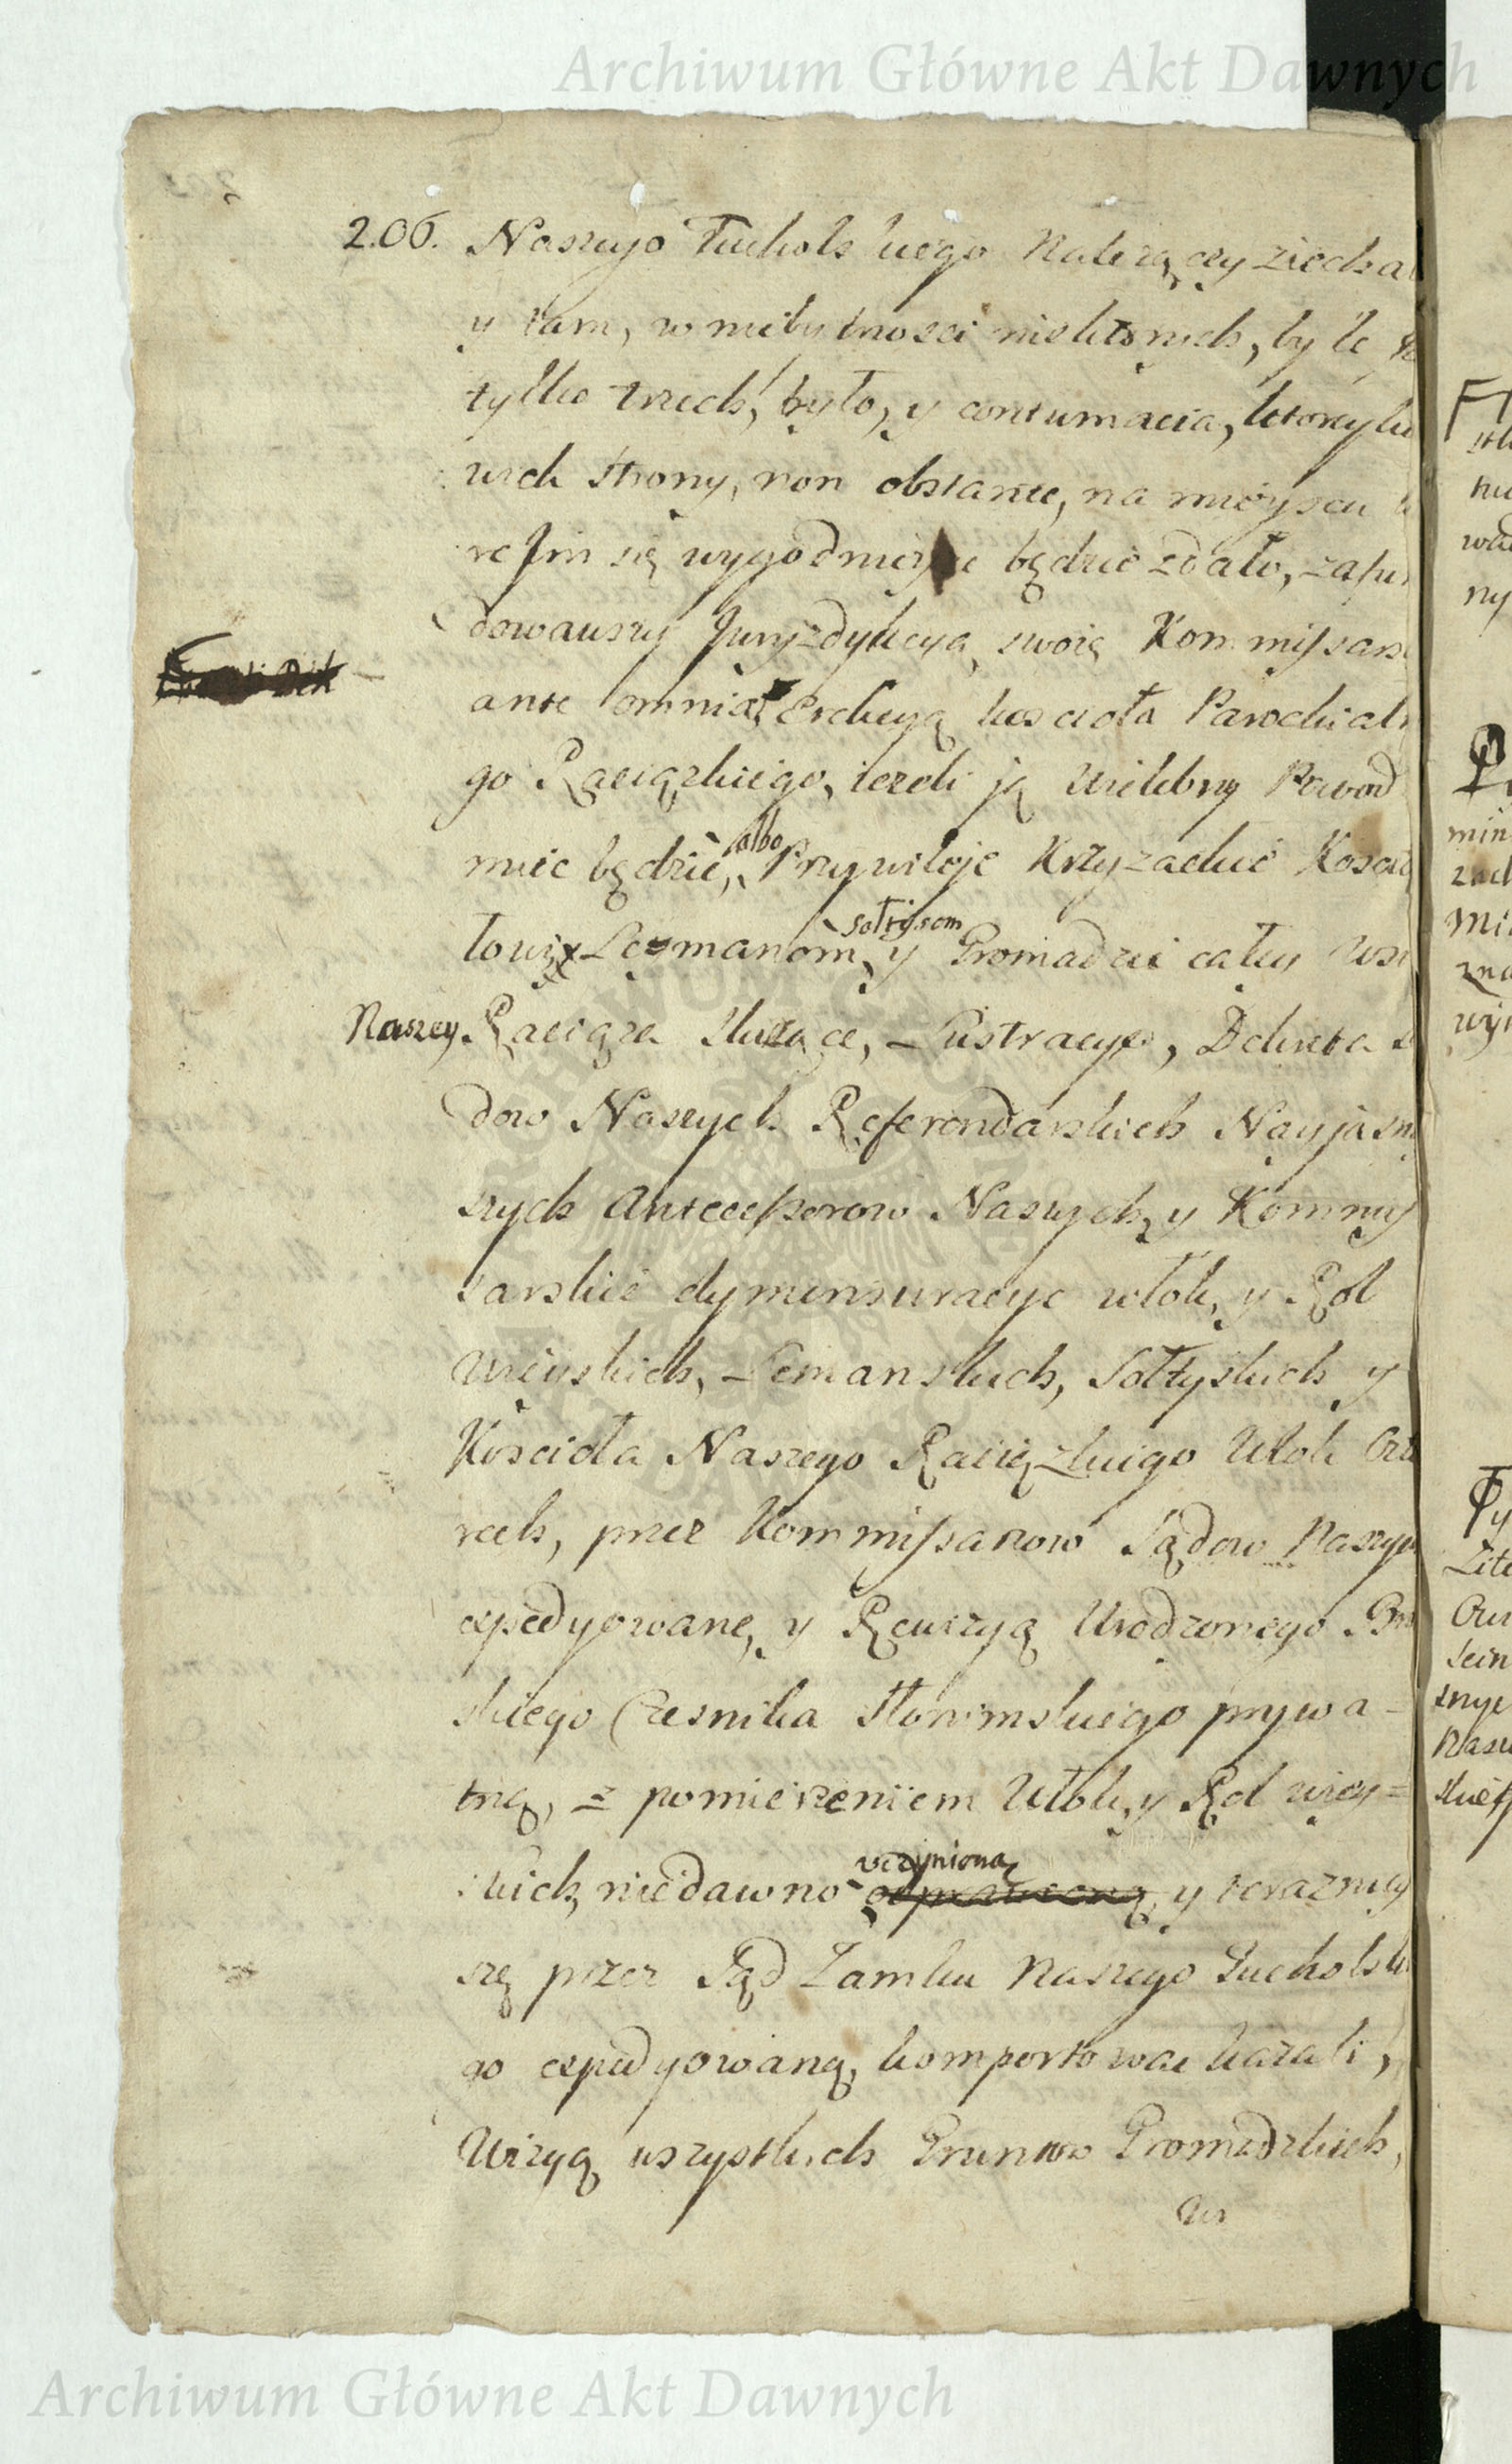 Archiwum Główne Akt Dawnych
206. Naszego Tucholskiego Należącey ziecha
y tam, w niebytnosci niektorych, byle
tylko trzech, było, y contumacia, ktoreyko
wiek Strony, non obstante, na mieyscu
rejm się wygodnieysze będzie zdało, zafun
dowawszy Juryzdykcyą swoię Kommissar
ante omnia Erekcyą koscioła Parochial
go Raciązkiego, iezeli ją Wielebny Powod
miec będzie, albo Przywileje Krzyzackie Koscio
łowi, Leymanom, sołtysom y Gromadzie całey wsi
Naszey Raciąza słuzące, Lustracye, Dekreta
dow Naszych Referendarskich Nayjasn
szych Antecessorow Naszych, y Kommis
sarskie dymensuracye włok, y Rol
wieyskich, Lemanskich, Sołtyskich y
Kościoła Naszego Raciązkiego Włok Czte
rech, przez Kommissarzow Sądow Naszych
expedyowane, y Rewizyą Urodzonego
skiego Czesnika Słonimskiego prywa-
tną, z pomierzeniem Włok, y Rol wiey=
skich, niedawno uczynioną y terazniey
szę przez Sąd Zamku Naszego Tucholski
go expedyowaną, komportowac kazali,
Wizyą wszystkich Gruntow Gromadzkich,
Ws
Archiwum Główne Akt Dawnych